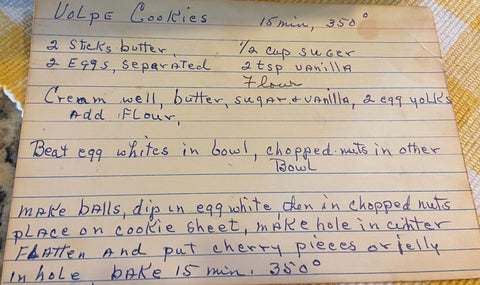 VOLPE COOKIES 15 min, 350°
2 Sticks butter, 1/2 cup suger
2 EGGS, separated 2 tsp vanilla
Flour
Cream well, butter, sugar + vanilla, 2 egg yolks
ADD FLOUR,
Beat egg whites in bowl, chopped nuts in other
Bowl
MAKE bAlls, dip in egg white, then in chopped nuts
PLACE on cookie sheet, mAKE hole in cinter
FLATTEN AND put cherry pieces or jelly
in hole, bAKE 15 min. 350°